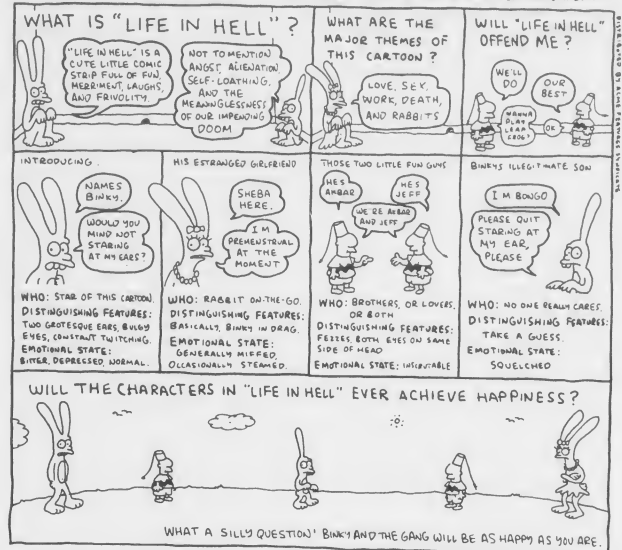 WHAT IS "LIFE IN HELL"?
"LIFE IN HELL" IS A
CUTE LITTLE COMIC
STRIP FULL OF FUN,
MERRIMENT, LAUGHS,
AND FRIVOLITY.
NOT TO MENTION
ANGST, ALIENATION
SELF-LOATHING,
AND THE
MEANINGLESSNESS
OF OUR IMPENDING
DOOM
WHAT ARE THE
MAJOR THEMES OF
THIS CARTOON?
LOVE, SEX,
WORK, DEATH,
AND RABBITS
WILL "LIFE IN HELL"
OFFEND ME?
WE'LL
DO
OUR
BEST
WANNA
PLAY
LEAP
FROG?
OK
DISTRIBUTED BY ACME FEATURES SYNDICATE
INTRODUCING.
NAMES
BINKY.
WOULD YOU
MIND NOT
STARING
AT MY EARS?
WHO: STAR OF THIS CARTOON.
DISTINGUISHING FEATURES:
TWO GROTESQUE EARS, BULGY
EYES, CONSTANT TWITCHING.
EMOTIONAL STATE:
BITTER, DEPRESSED, NORMAL.
HIS ESTRANGED GIRLFRIEND
SHEBA
HERE.
I'M
PREMENSTRUAL
AT THE
MOMENT
WHO: RABBIT ON-THE-GO.
DISTINGUISHING FEATURES:
BASICALLY, BINKY IN DRAG.
EMOTIONAL STATE:
GENERALLY MIFFED,
OCCASIONALLY STEAMED.
THOSE TWO LITTLE FUN GUYS
HES
AKBAR
HES
JEFF
WE'RE AKBAR
AND JEFF
WHO: BROTHERS, OR LOVERS,
OR BOTH
DISTINGUISHING FEATURES:
FEZZES, BOTH EYES ON SAME
SIDE OF HEAD
EMOTIONAL STATE: INSCRUTABLE
BINKYS ILLEGITIMATE SON
I M BONGO
PLEASE QUIT
STARING AT
MY EAR,
PLEASE
WHO: NO ONE REALLY CARES.
DISTINGUISHING FEATURES:
TAKE A GUESS.
EMOTIONAL STATE:
SQUELCHED
WILL THE CHARACTERS IN "LIFE IN HELL" EVER ACHIEVE HAPPINESS?
WHAT A SILLY QUESTION! BINKY AND THE GANG WILL BE AS HAPPY AS YOU ARE.